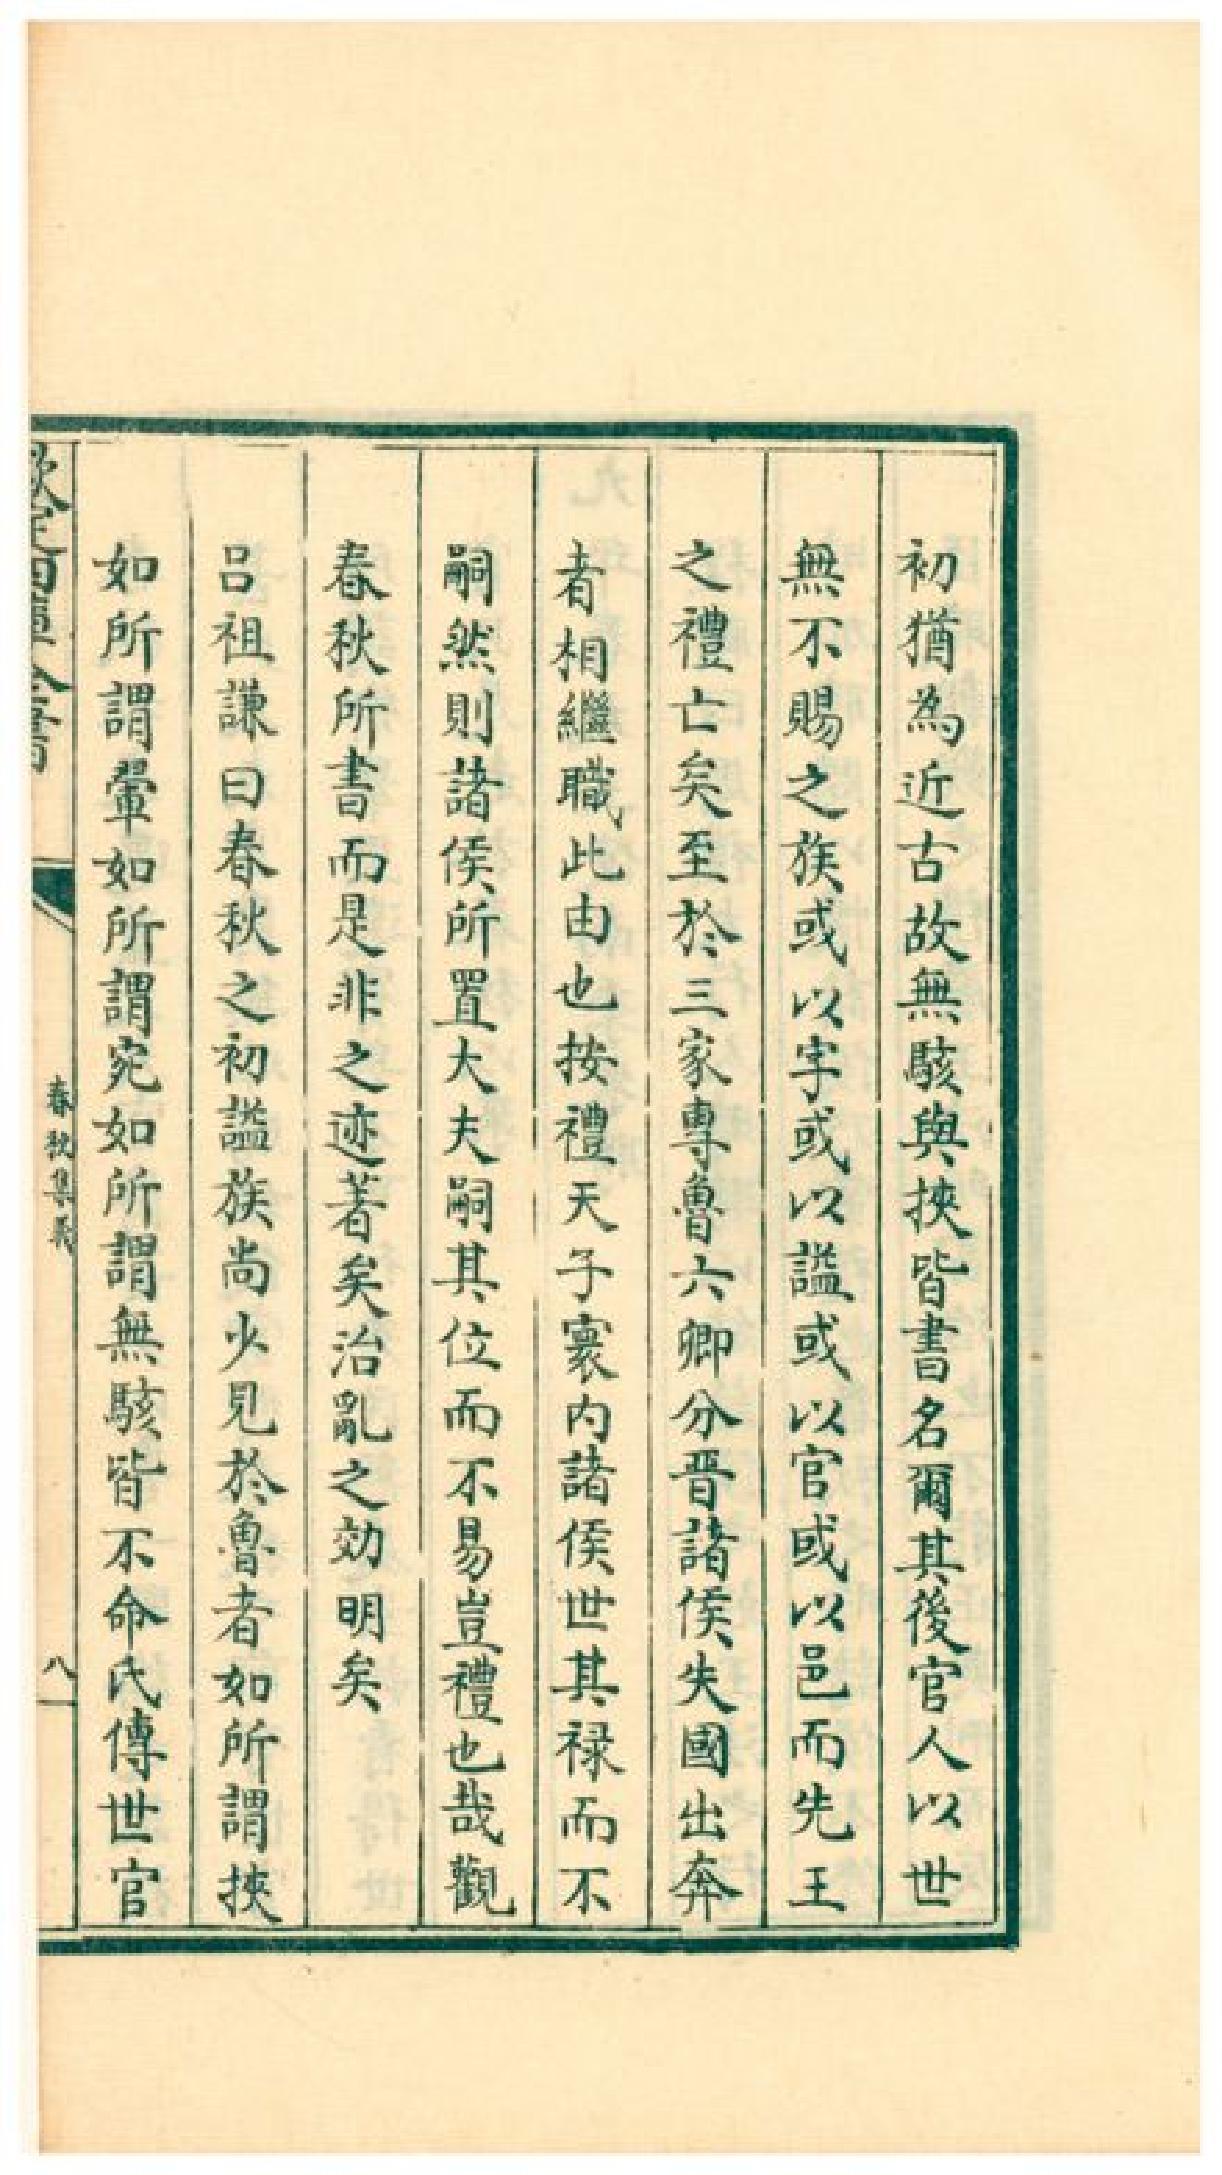 初猶為近古故無駭與挾皆書名爾其後官人以世
無不賜之族或以字或以諡或以官或以邑而先王
之禮亡矣至於三家專魯六卿分晋諸侯失國出奔
者相繼職此由也按禮天子寰内諸侯世其禄而不
嗣然則諸侯所置大夫嗣其位而不易豈禮也哉觀
春秋所書而是非之迹著矣治亂之効明矣
吕祖謙曰春秋之初諡族尚少見於魯者如所謂挾
如所謂翬如所謂宛如所謂無駭皆不命氏傳世官
欽定四庫全書
春秋集義
八